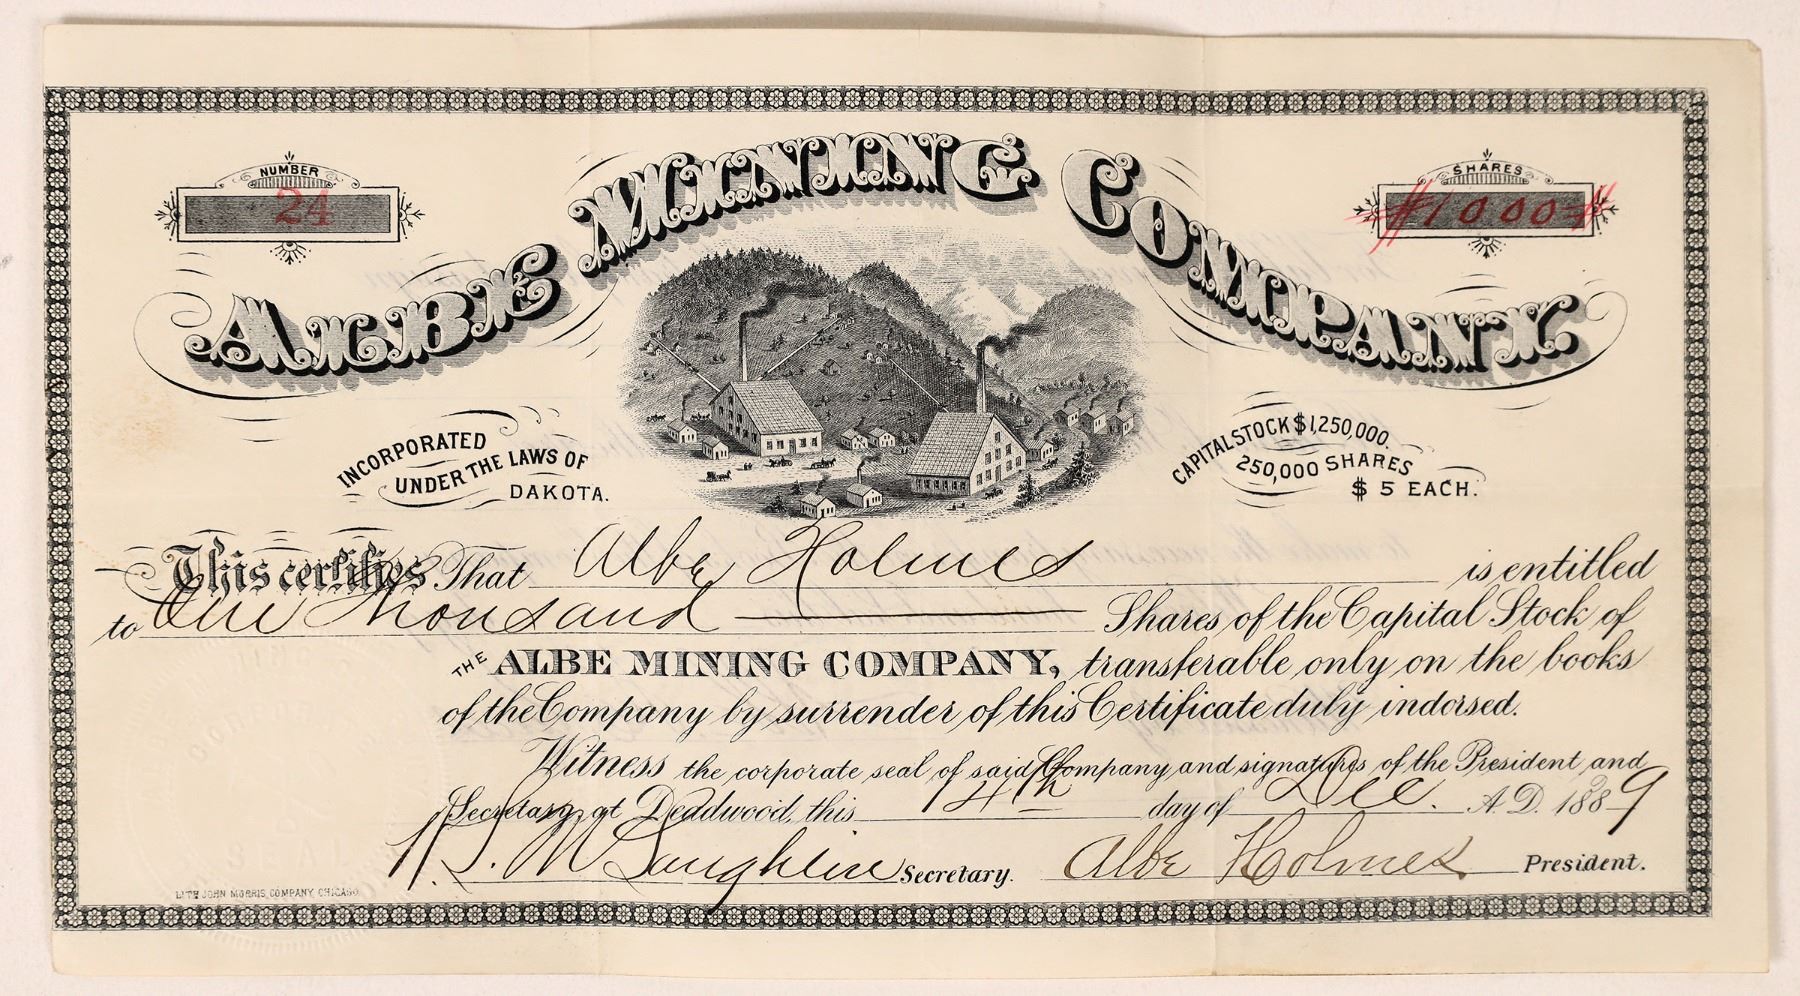 NUMBER
24
ALBE MINING COMPANY.
SHARES
#1000#
INCORPORATED
UNDER THE LAWS OF
DAKOTA.
CAPITAL STOCK $1,250,000.
250,000 SHARES
$5 EACH.
This certifies That Albe Holmes is entitled
to One Thousand Shares of the Capital Stock of
THE ALBE MINING COMPANY, transferable only on the books
of the Company by surrender of this Certificate duly indorsed.
Witness the corporate seal of said Company and signatures of the President and
Secretary at Deadwood, this 14th day of Dec. A.D. 1889
McLaughlin Secretary. Albe Holmes President.
SEAL
LITH JOHN MORRIS COMPANY, CHICAGO